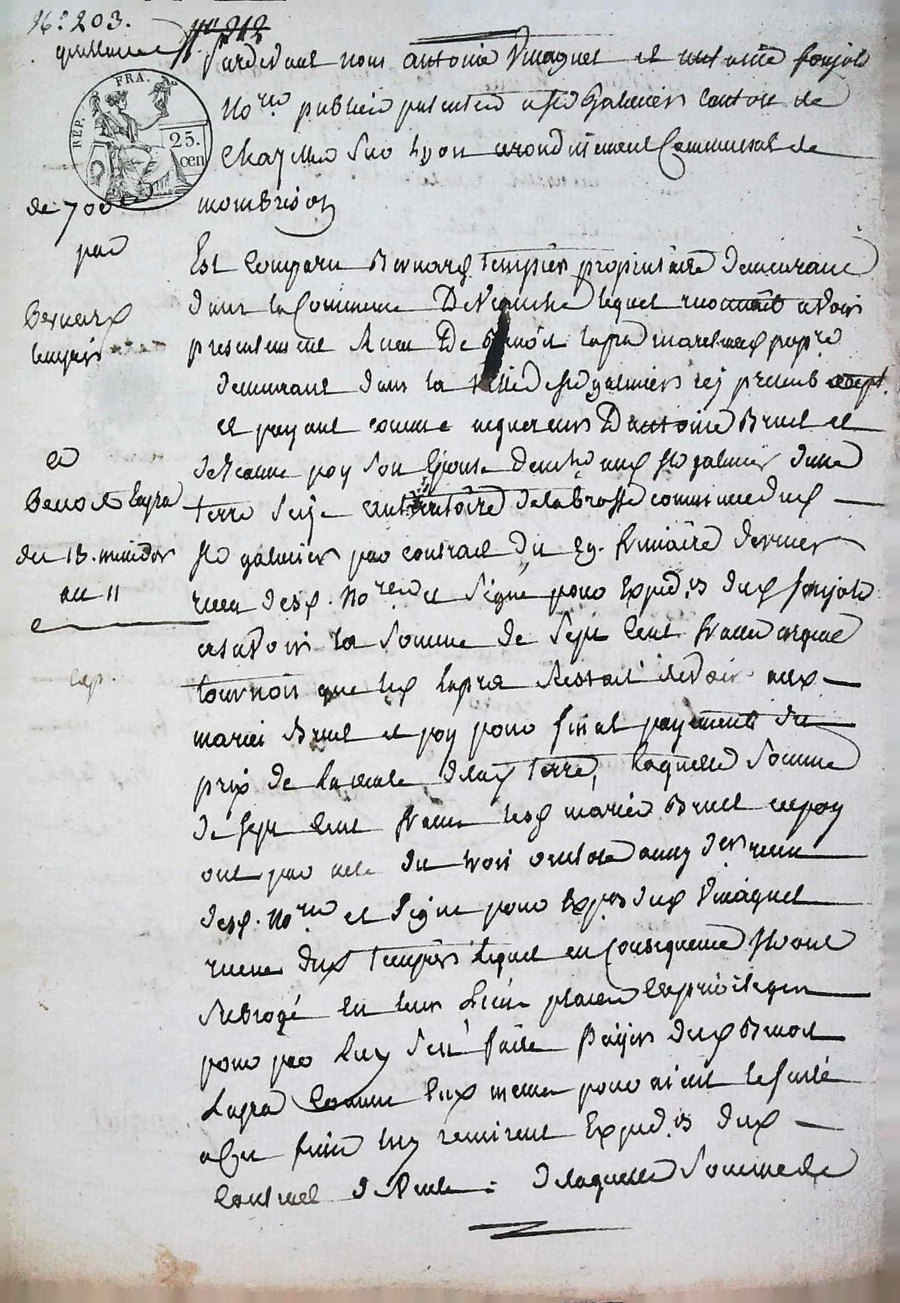 N.° 203.
quittance
REP. FRA.
25.
cen
de 700
par
Bernard
tempier
a
Benoit lapra
du 13. messidor
an 11
Pardevant nous antoine Vinagnet et antoine foujols
No.re publics patentés a st Galmier Canton de
Chazelles sur Lyon arrondissement Communal de
montbrison
Est comparu Bernard tempier propriétaire demeurant
dans la Commune De lequel reconnait avoir
presentement Reçu De Benoit lapra marechal propre
demeurant dans la ville de st galmier icy present accept.
et payant comme acquereur D'antoine Bruel et
de Jeanne poy son Epouse dud st galmier d'une
terre size au territoire de la brosse commune dud
st galmier par contrat du 29. frimaire dernier
recu desd. No.res et signé pour Exped.on dud foujols
asavoir la somme de Sept Cent francs argent
tournois que led lapra Restait devoir aux
mariés Bruel et poy pour final payement du
prix de la vente de lad terre, laquelle somme
de sept Cent francs lesd mariés Bruel et poy
ont par acte du trois
desd. No.res et signé pour Exp.on dud Vinagnet
dud tempier lequel en Consequence ils ont
subrogé en leur lieu place et privilegen
pour par luy s'en faire payer dud Benoit
Lapra Comme Eux meme pouvaient le faire
a cet fait luy remirent Exped.on dud
Contrat de Vente : de laquelle somme de